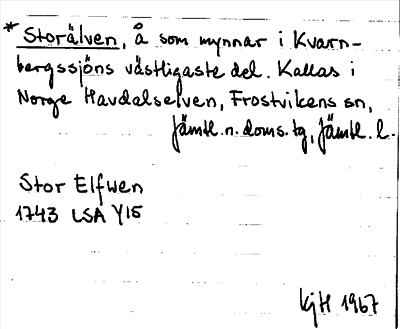 * Storälven, å som mynnar i Kvarn-
bergssjöns västligaste del. Kallas i
Norge Havdalselven, Frostvikens sn,
Jämtl.n.doms.tg, Jämtl.l.
Stor Elfwen
1743 LSA Y15
KjH 1967